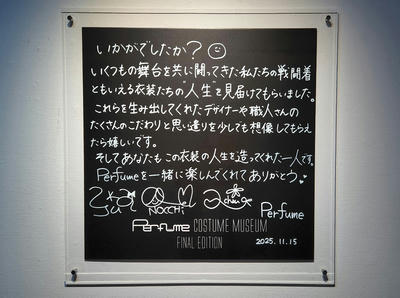 いかがでしたか？
いくつもの舞台を共に闘ってきた私たちの戦闘着
ともいえる衣装たちの"人生"を見届けてもらいました。
これらを生み出してくれたデザイナーや職人さんの
たくさんのこだわりと思い遣りを少しでも想像してもらえ
たら嬉しいです。
そしてあなたもこの衣装の人生を造ってくれた一人です。
Perfumeを一緒に楽しんでくれてありがとう♥
NOCCHI a~chan Perfume
Perfume COSTUME MUSEUM
FINAL EDITION 2025.11.15